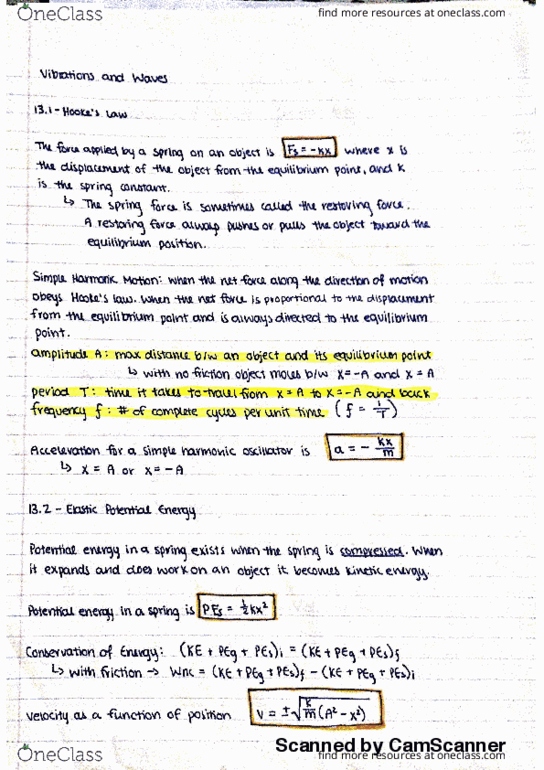 OneClass find more resources at oneclass.com
Vibrations and Waves
13.1 - Hooke's Law
The force applied by a spring on an object is Fs = -kx where x is
the displacement of the object from the equilibrium point, and k
is the spring constant.
↳ The spring force is sometimes called the restoring force.
A restoring force always pushes or pulls the object toward the
equilibrium position.
Simple Harmonic Motion: when the net force along the direction of motion
obeys Hooke's law. When the net force is proportional to the displacement
from the equilibrium point and is always directed to the equilibrium
point.
amplitude A: max distance b/w an object and its equilibrium point
↳ with no friction object moves b/w x=-A and x = A
period T: time it takes to travel from x = A to x = -A and back
frequency f: # of complete cycles per unit time (f = 1/T)
Acceleration for a simple harmonic oscillator is a = - kx/m
↳ x = A or x = -A
13.2 - Elastic Potential Energy
Potential energy in a spring exists when the spring is compressed. When
it expands and does work on an object it becomes kinetic energy.
Potential energy in a spring is PEs = ½kx²
Conservation of Energy: (KE + PEg + PEs)i = (KE + PEg + PEs)f
↳ with friction → Wnc = (KE + PEg + PEs)f - (KE + PEg + PEs)i
Velocity as a function of position V = ±√k/m(A² - x²)
Scanned by CamScanner
OneClass find more resources at oneclass.com